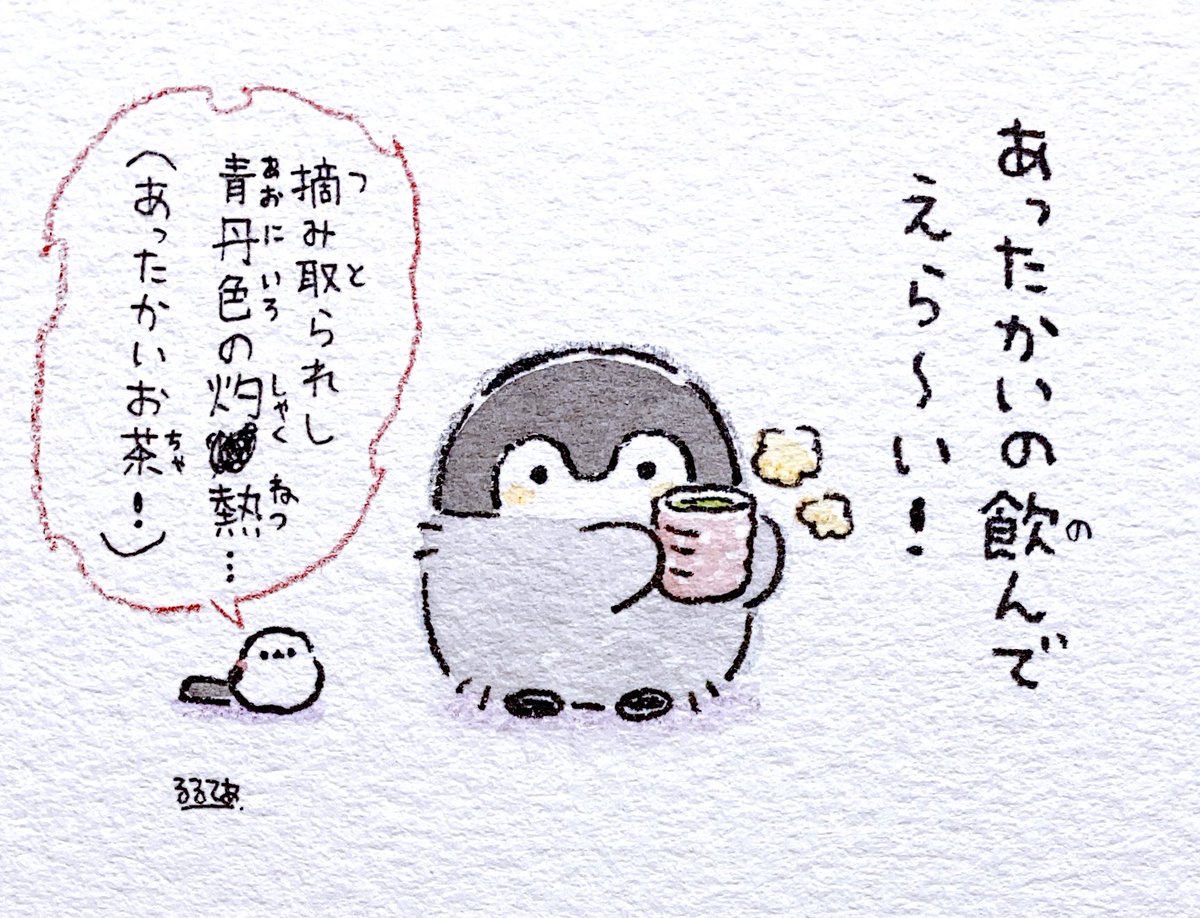 あったかいの飲んで
えら〜い！
摘み取られし
青丹色の灼熱…
（あったかいお茶！）
るるてあ